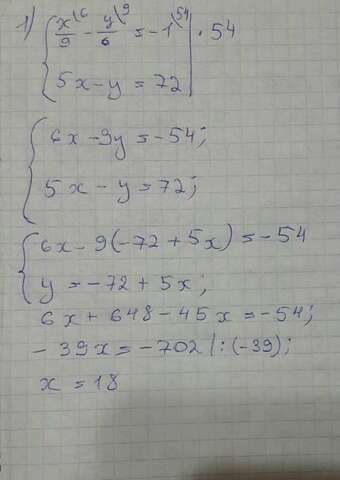 1) { x/9 \6 - y/6 \9 = -1 \54 | · 54
5x - y = 72
{ 6x - 9y = -54;
5x - y = 72;
{ 6x - 9(-72 + 5x) = -54
y = -72 + 5x;
6x + 648 - 45x = -54;
- 39x = -702 | : (-39);
x = 18